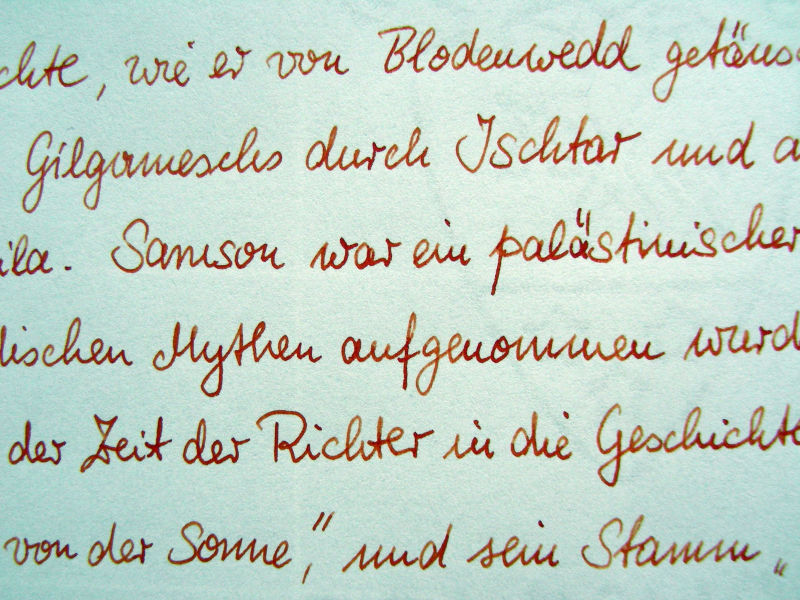 chte, wie er von Blodenwedd getäusc
Gilgameschs durch Ischtar und a
ila. Samson war ein palästinischer
dischen Mythen aufgenommen wurd
der Zeit der Richter in die Geschichte
von der Sonne," und sein Stamm „